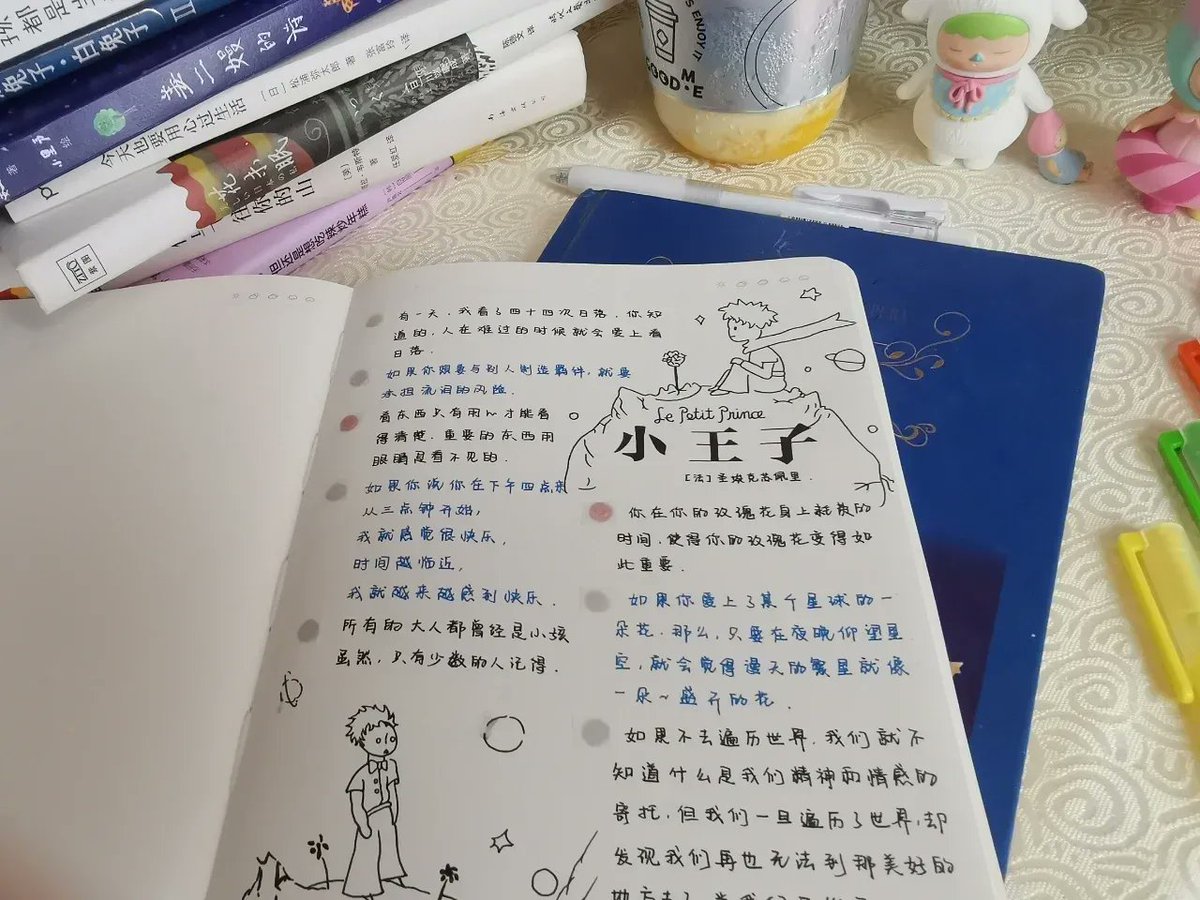 兔子·白兔子
II
姜二嫚的诗
今天也要用心过生活
[日]松浦弥太郎 著
张富玲 译
在你的山
有一天,我看了四十四次日落.你知
道的,人在难过的时候就会爱上看
日落.
如果你想要与别人制造羁绊,就要
承担流泪的风险.
看东西只有用心才能看
得清楚.重要的东西用
眼睛是看不见的.
如果你说你在下午四点来
从三点钟开始,
我就感觉很快乐,
时间越临近,
我就越来越感到快乐.
所有的大人都曾经是小孩
虽然,只有少数的人记得.
Le Petit Prince
小王子
[法]圣埃克苏佩里.
你在你的玫瑰花身上耗费的
时间,使得你的玫瑰花变得如
此重要.
如果你爱上了某个星球的一
朵花.那么,只要在夜晚仰望星
空,就会觉得漫天的繁星就像
一朵~盛开的花.
如果不去遍历世界,我们就不
知道什么是我们精神和情感的
寄托,但我们一旦遍历了世界,却
发现我们再也无法到那美好的
ENJOY IT
GOOD ME